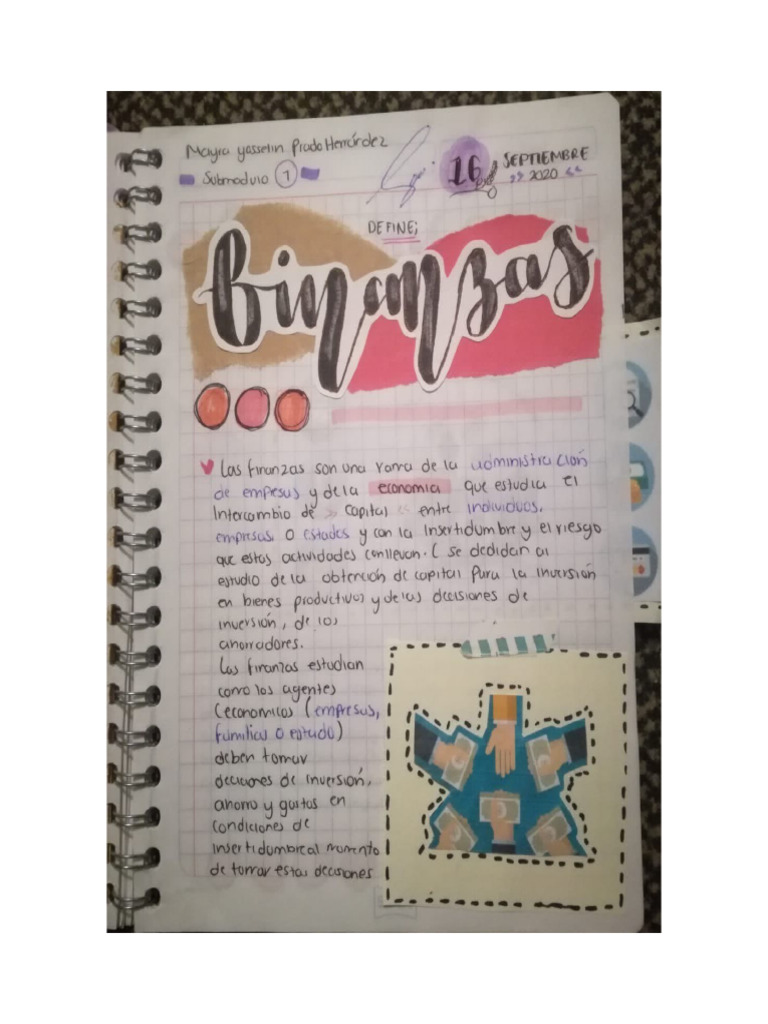 Mayra yasselin Prado Hernández
Submodulo 1
16 SEPTIEMBRE
2020
DEFINE;
Finanzas
Las finanzas son una rama de la administración
de empresas y de la economia que estudia el
Intercambio de capital entre individuos,
empresas, o estados y con la Insertidumbre y el riesgo
que estas actividades conllevan. ( se dedidan al
estudio de la obtención de capital para la inversión
en bienes productivos y de las decisiones de
inversión, de los
ahorradores.
Las finanzas estudian
como los agentes
(economicos (empresas,
familias o estado)
deben tomar
deciciones de inversión,
ahorro y gastos en
condiciones de
insertidumbre al momento
de tomar estas decisiones